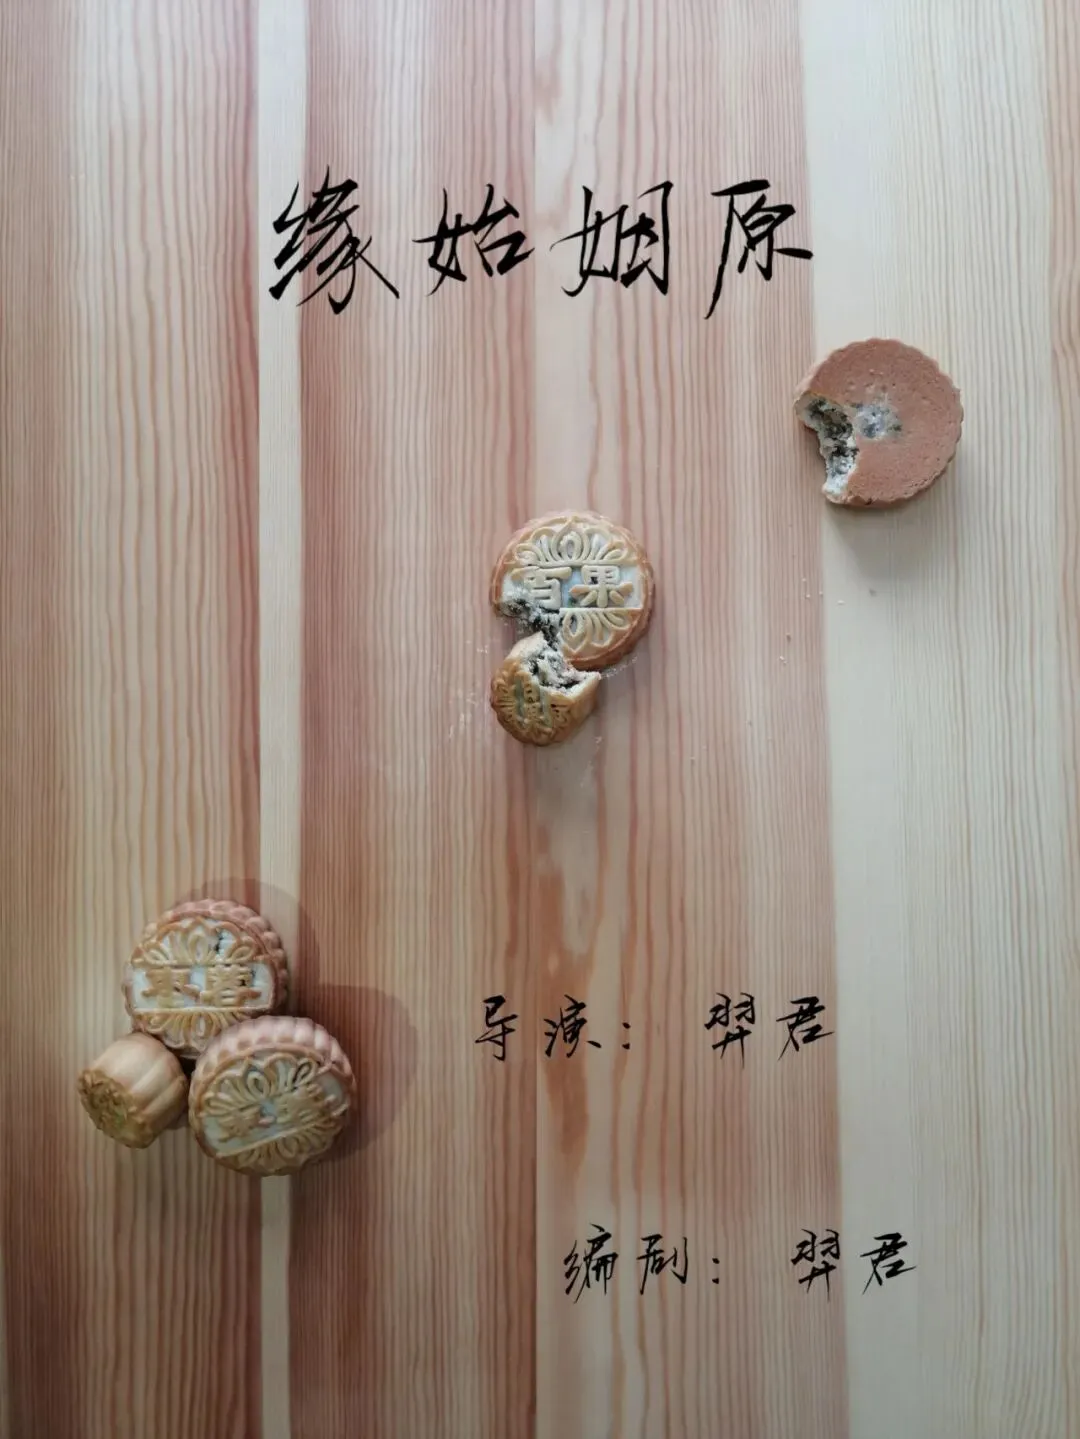 缘始姻原
百果
枣蓉
导演：羿君
编剧：羿君